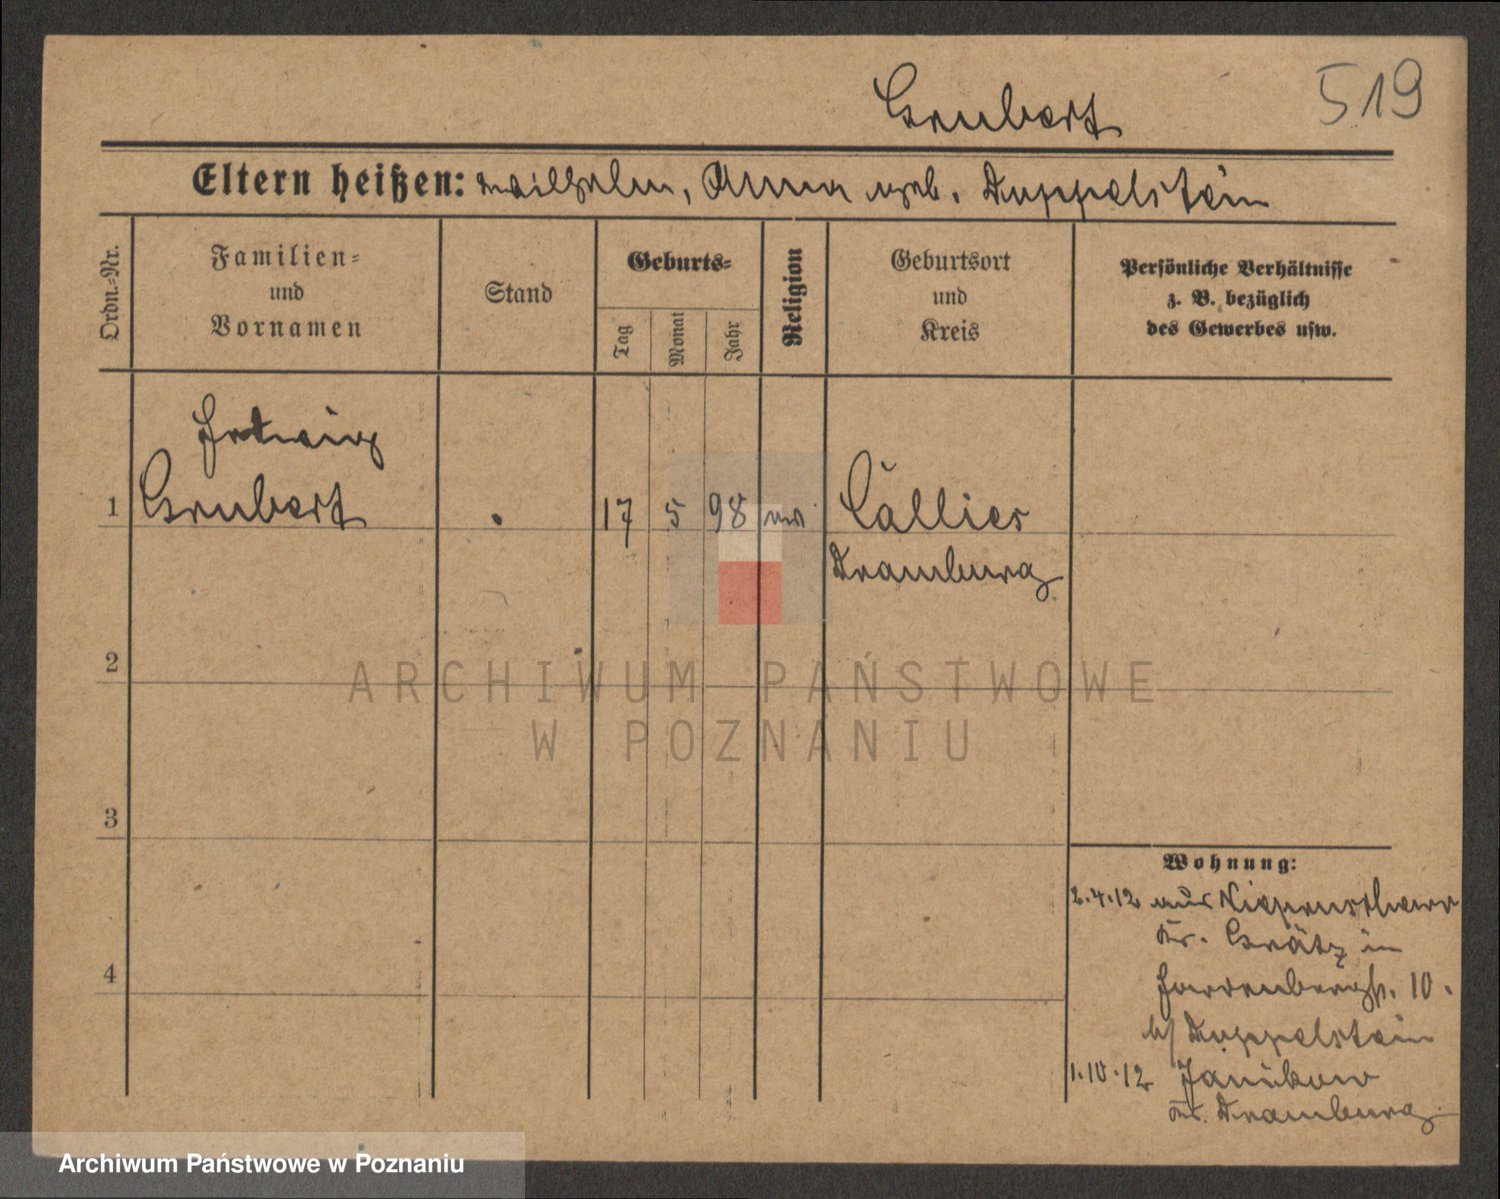 519
Grubert
Eltern heißen: Wilhelm, Anna geb. Duppelstein
Ordn.-Nr.
Familien-
und
Vornamen
Stand
Geburts-
Tag
Monat
Jahr
Religion
Geburtsort
und
Kreis
Persönliche Verhältnisse
z. B. bezüglich
des Gewerbes usw.
Hedwig
1 Grubert 17 5 98 Callies
Dramburg
2
ARCHIWUM PAŃSTWOWE
W POZNANIU
3
Wohnung:
2.4.12 aus
Kr. Grätz in
10.
b/ Duppelstein
4
1.10.12 Janikow
Kr. Dramburg
Archiwum Państwowe w Poznaniu